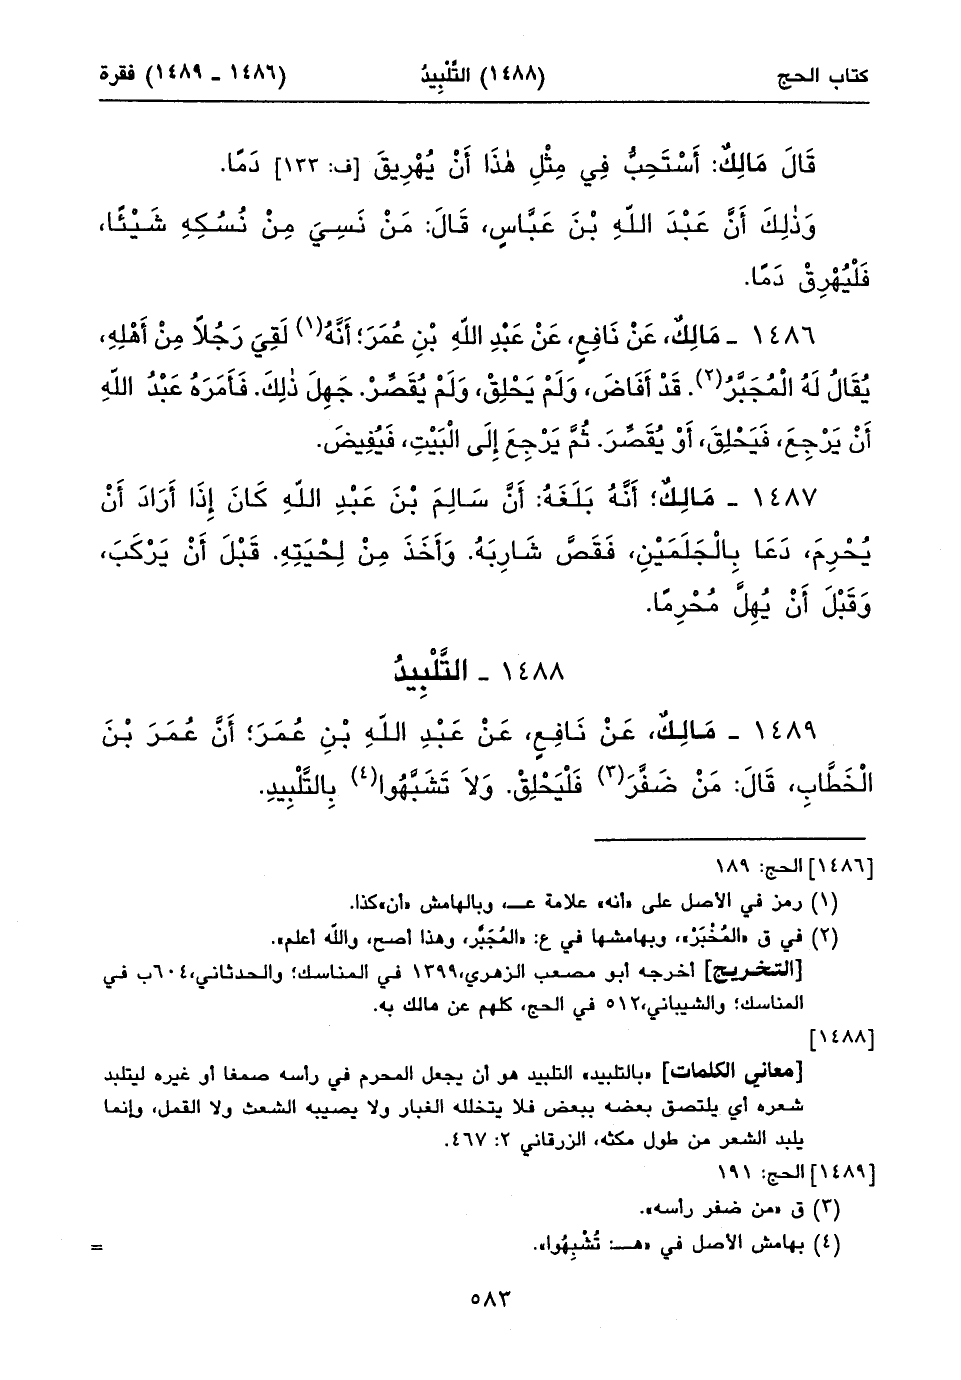 كتاب الحج (١٤٨٨) التَّلْبِيدُ (١٤٨٦ - ١٤٨٩) فقرة
قَالَ مَالِكٌ: أَسْتَحِبُّ فِي مِثْلِ هٰذَا أَنْ يُهْرِيقَ [ف: ١٣٣] دَمًا.
وَذٰلِكَ أَنَّ عَبْدَ اللّهِ بْنَ عَبَّاسٍ، قَالَ: مَنْ نَسِيَ مِنْ نُسُكِهِ شَيْئًا،
فَلْيُهْرِقْ دَمًا.
١٤٨٦ - مَالِكٌ، عَنْ نَافِعٍ، عَنْ عَبْدِ اللّهِ بْنِ عُمَرَ؛ أَنَّهُ(١) لَقِيَ رَجُلاً مِنْ أَهْلِهِ،
يُقَالُ لَهُ الْمُجَبَّرُ(٢). قَدْ أَفَاضَ، وَلَمْ يَحْلِقْ، وَلَمْ يُقَصِّرْ. جَهِلَ ذٰلِكَ. فَأَمَرَهُ عَبْدُ اللّهِ
أَنْ يَرْجِعَ، فَيَحْلِقَ، أَوْ يُقَصِّرَ. ثُمَّ يَرْجِعَ إِلَى الْبَيْتِ، فَيُفِيضَ.
١٤٨٧ - مَالِكٌ؛ أَنَّهُ بَلَغَهُ: أَنَّ سَالِمَ بْنَ عَبْدِ اللّهِ كَانَ إِذَا أَرَادَ أَنْ
يُحْرِمَ، دَعَا بِالْجَلَمَيْنِ، فَقَصَّ شَارِبَهُ. وَأَخَذَ مِنْ لِحْيَتِهِ. قَبْلَ أَنْ يَرْكَبَ،
وَقَبْلَ أَنْ يُهِلَّ مُحْرِمًا.
١٤٨٨ - التَّلْبِيدُ
١٤٨٩ - مَالِكٌ، عَنْ نَافِعٍ، عَنْ عَبْدِ اللّهِ بْنِ عُمَرَ؛ أَنَّ عُمَرَ بْنَ
الْخَطَّابِ، قَالَ: مَنْ ضَفَّرَ(٣) فَلْيَحْلِقْ. وَلاَ تَشَبَّهُوا(٤) بِالتَّلْبِيدِ.
[١٤٨٦] الحج: ١٨٩
(١) رمز في الأصل على «أنه» علامة عـ، وبالهامش «أن»كذا.
(٢) في ق «المُخْبَرْ»، وبهامشها في ع: «المُجَبَّر، وهذا أصح، واللّه أعلم».
[التخريج] أخرجه أبو مصعب الزهري،١٣٩٩ في المناسك؛ والحدثاني،٦٠٤ب في
المناسك؛ والشيباني،٥١٢ في الحج، كلهم عن مالك به.
[١٤٨٨]
[معاني الكلمات] «بالتلبيد» التلبيد هو أن يجعل المحرم في رأسه صمغا أو غيره ليتلبد
شعره أي يلتصق بعضه ببعض فلا يتخلله الغبار ولا يصيبه الشعث ولا القمل، وإنما
يلبد الشعر من طول مكثه، الزرقاني ٢: ٤٦٧.
[١٤٨٩] الحج: ١٩١
(٣) ق «من ضفر رأسه».
(٤) بهامش الأصل في «هـ: تُشْبِهُوا». =
٥٨٣